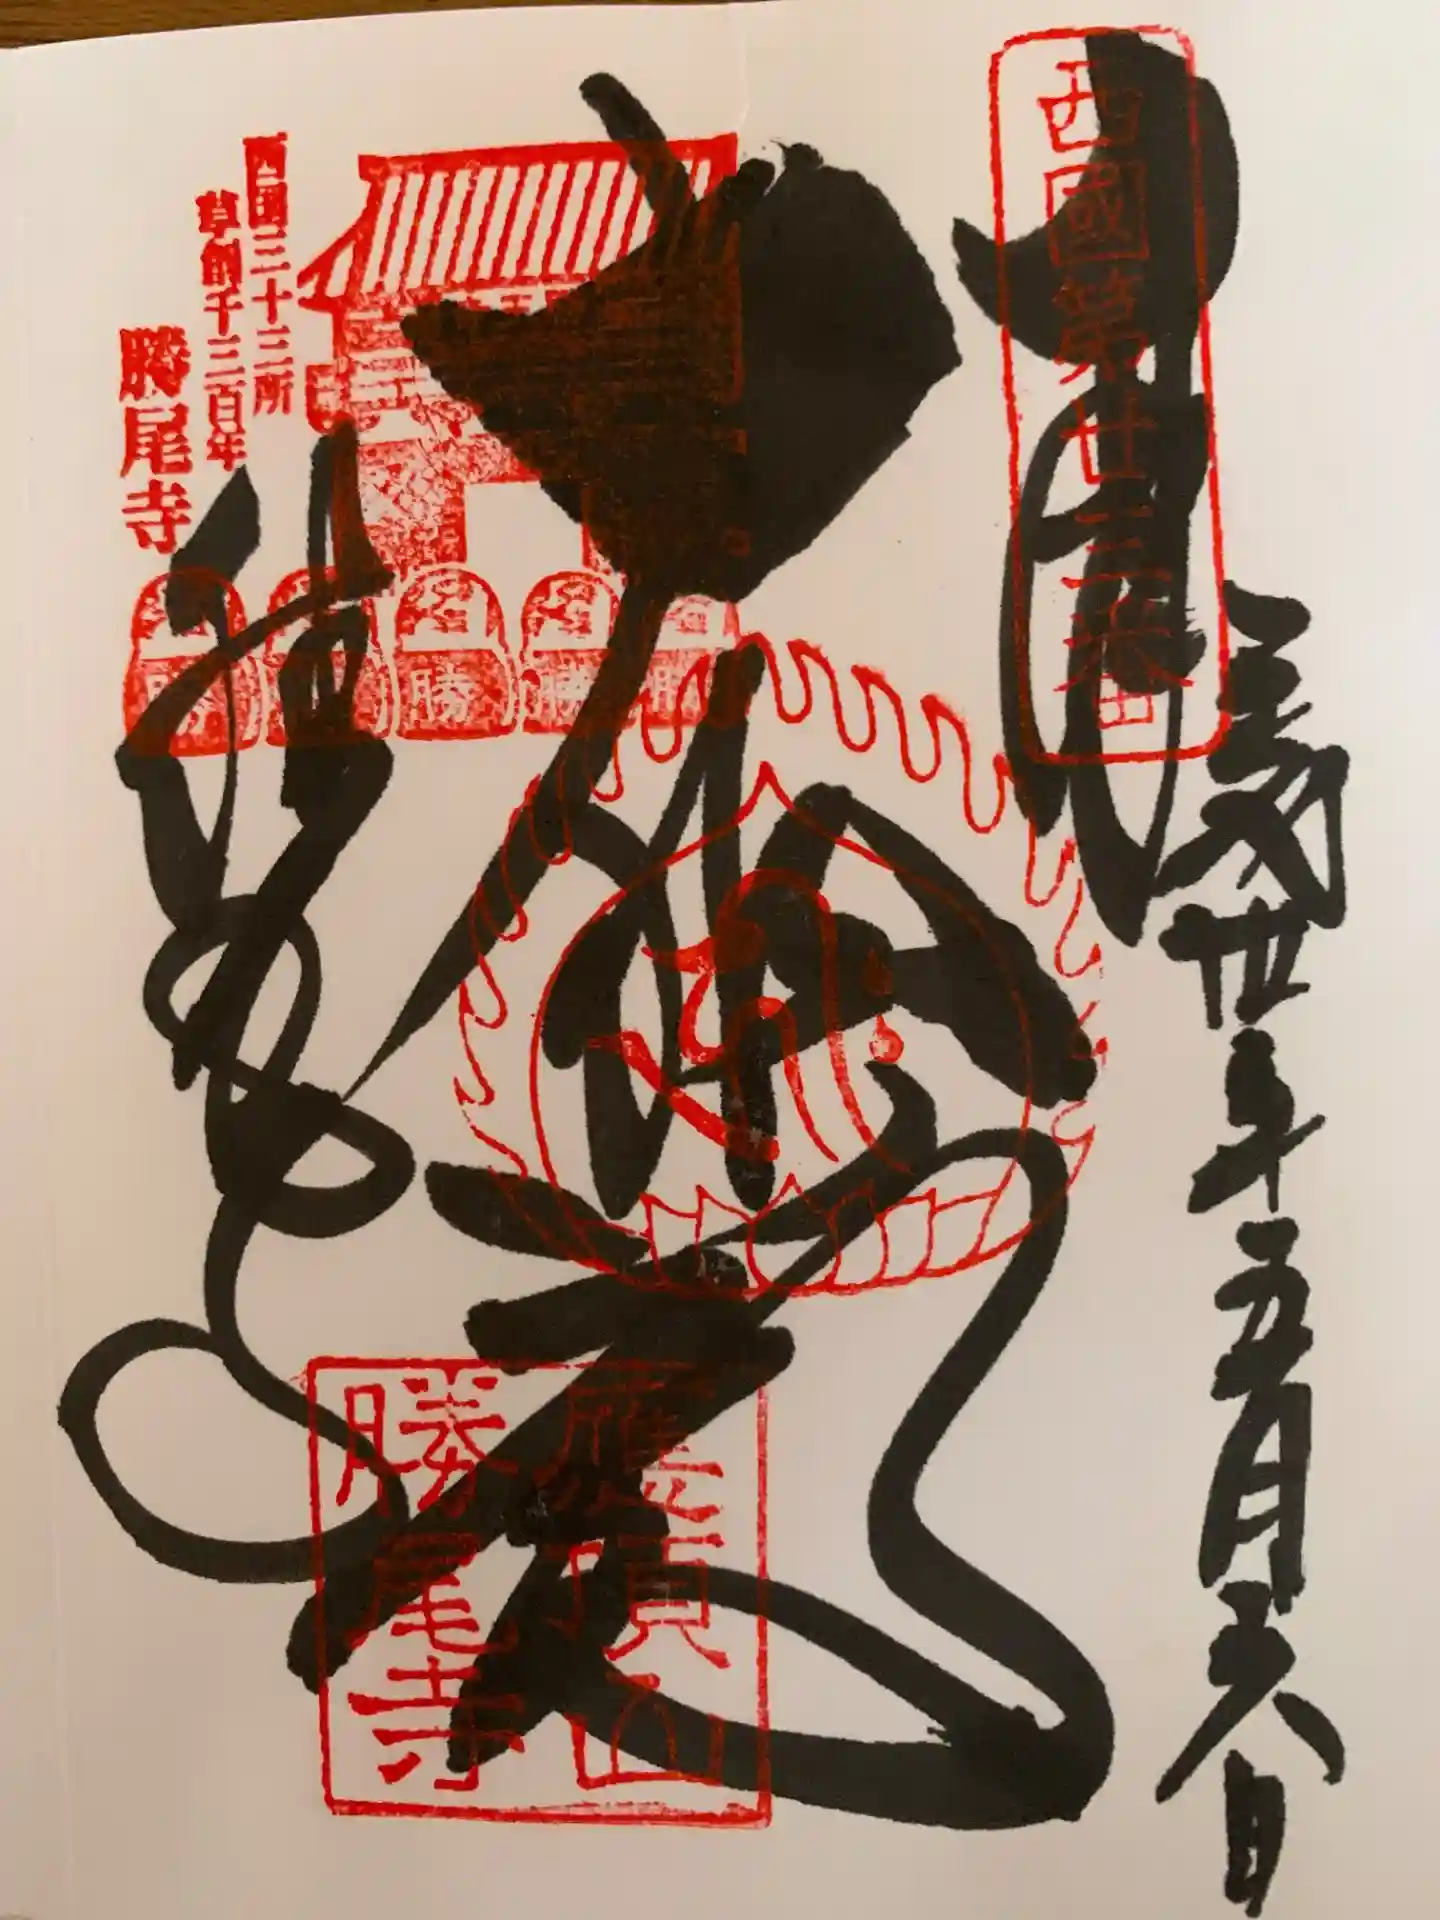 奉拝
西國第廿三番
平成卅年五月六日
大悲殿
應頂山
勝尾寺
西国三十三所
草創千三百年
勝尾寺
勝 勝 勝 勝 勝
勝尾寺